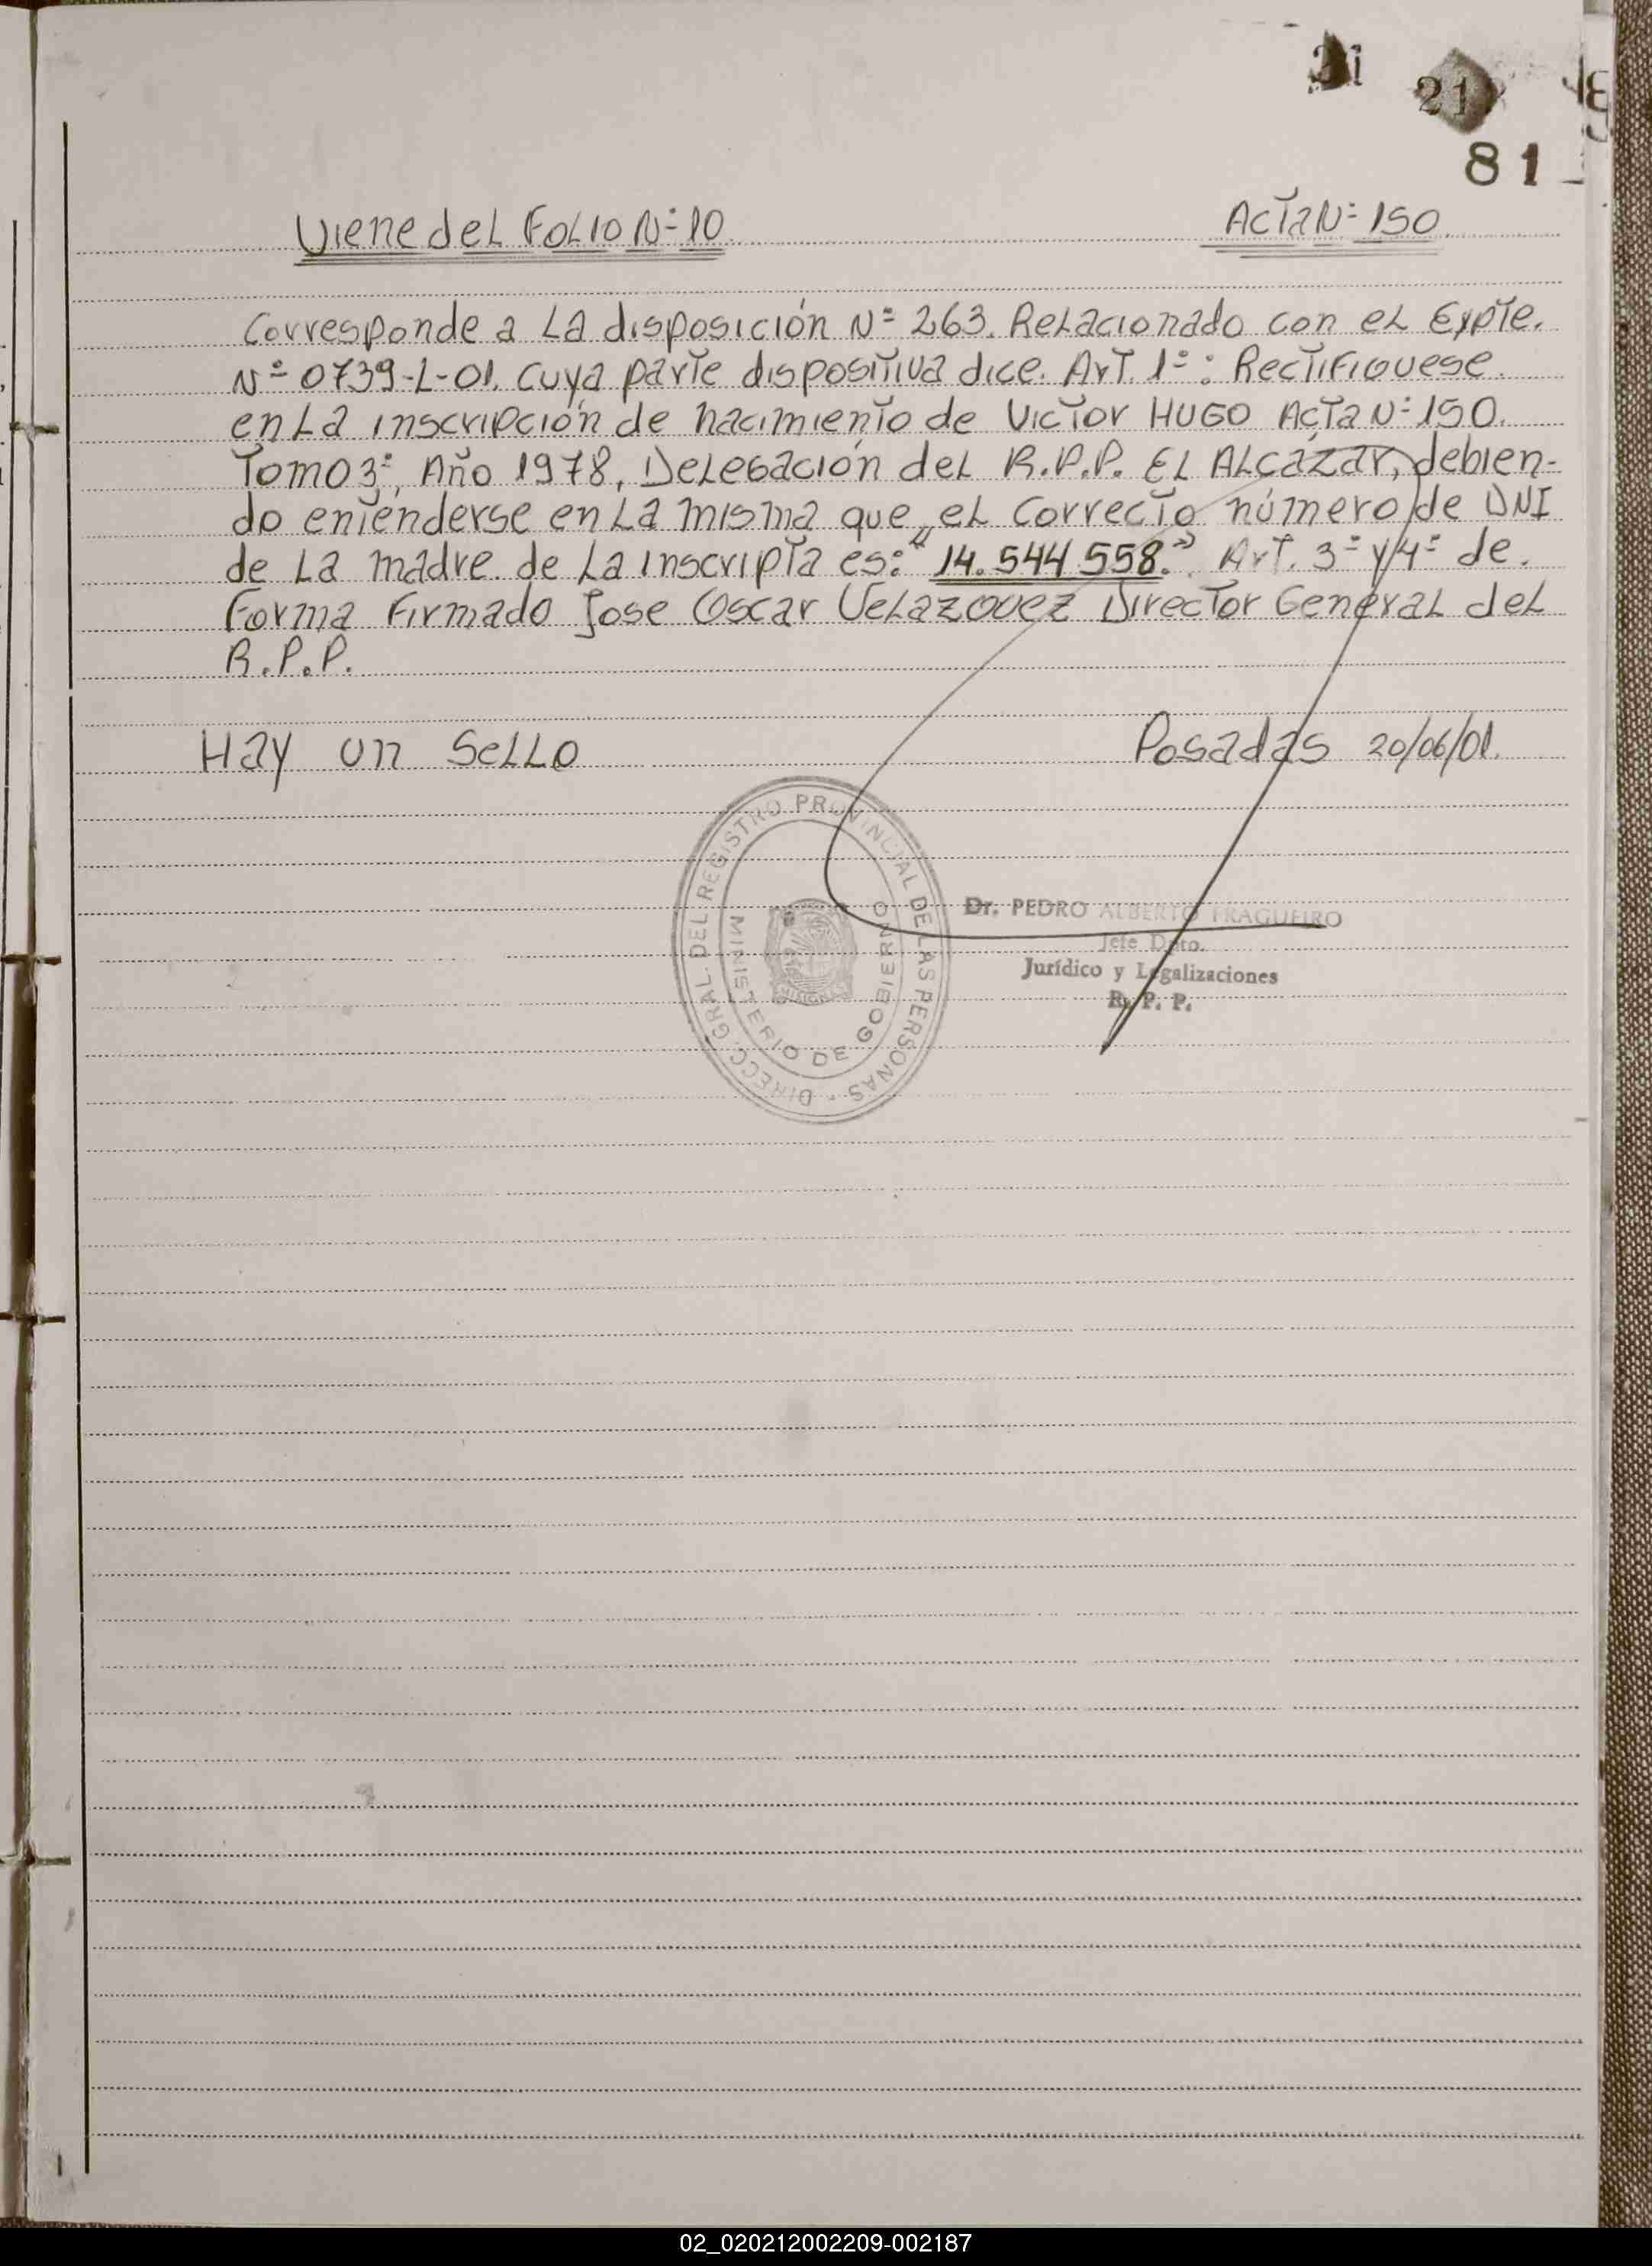 21
81
Viene del Folio Nº 10
Acta Nº 150
Corresponde a La disposición Nº 263. Relacionado con el Expte.
Nº 0739-L-01. Cuya parte dispositiva dice. Art. 1º: Rectifiquese
en La inscripción de nacimiento de Victor HUGO Acta Nº 150.
Tomo 3º, Año 1978, Delegación del R.P.P. El Alcázar, debien-
do entenderse en La misma que el correcto número de DNI
de La madre de La inscripta es: "14.544 558." Art. 3º y 4º de.
Forma Firmado Jose Oscar Velazquez Director General del
R.P.P.
Hay un Sello
Posadas 20/06/01.
DIRECC. GRAL. DEL REGISTRO PROVINCIAL DE LAS PERSONAS
MINISTERIO DE GOBIERNO
Dr. PEDRO ALBERTO FRAGUEIRO
Jefe Dpto.
Jurídico y Legalizaciones
R. P. P.
02_020212002209-002187